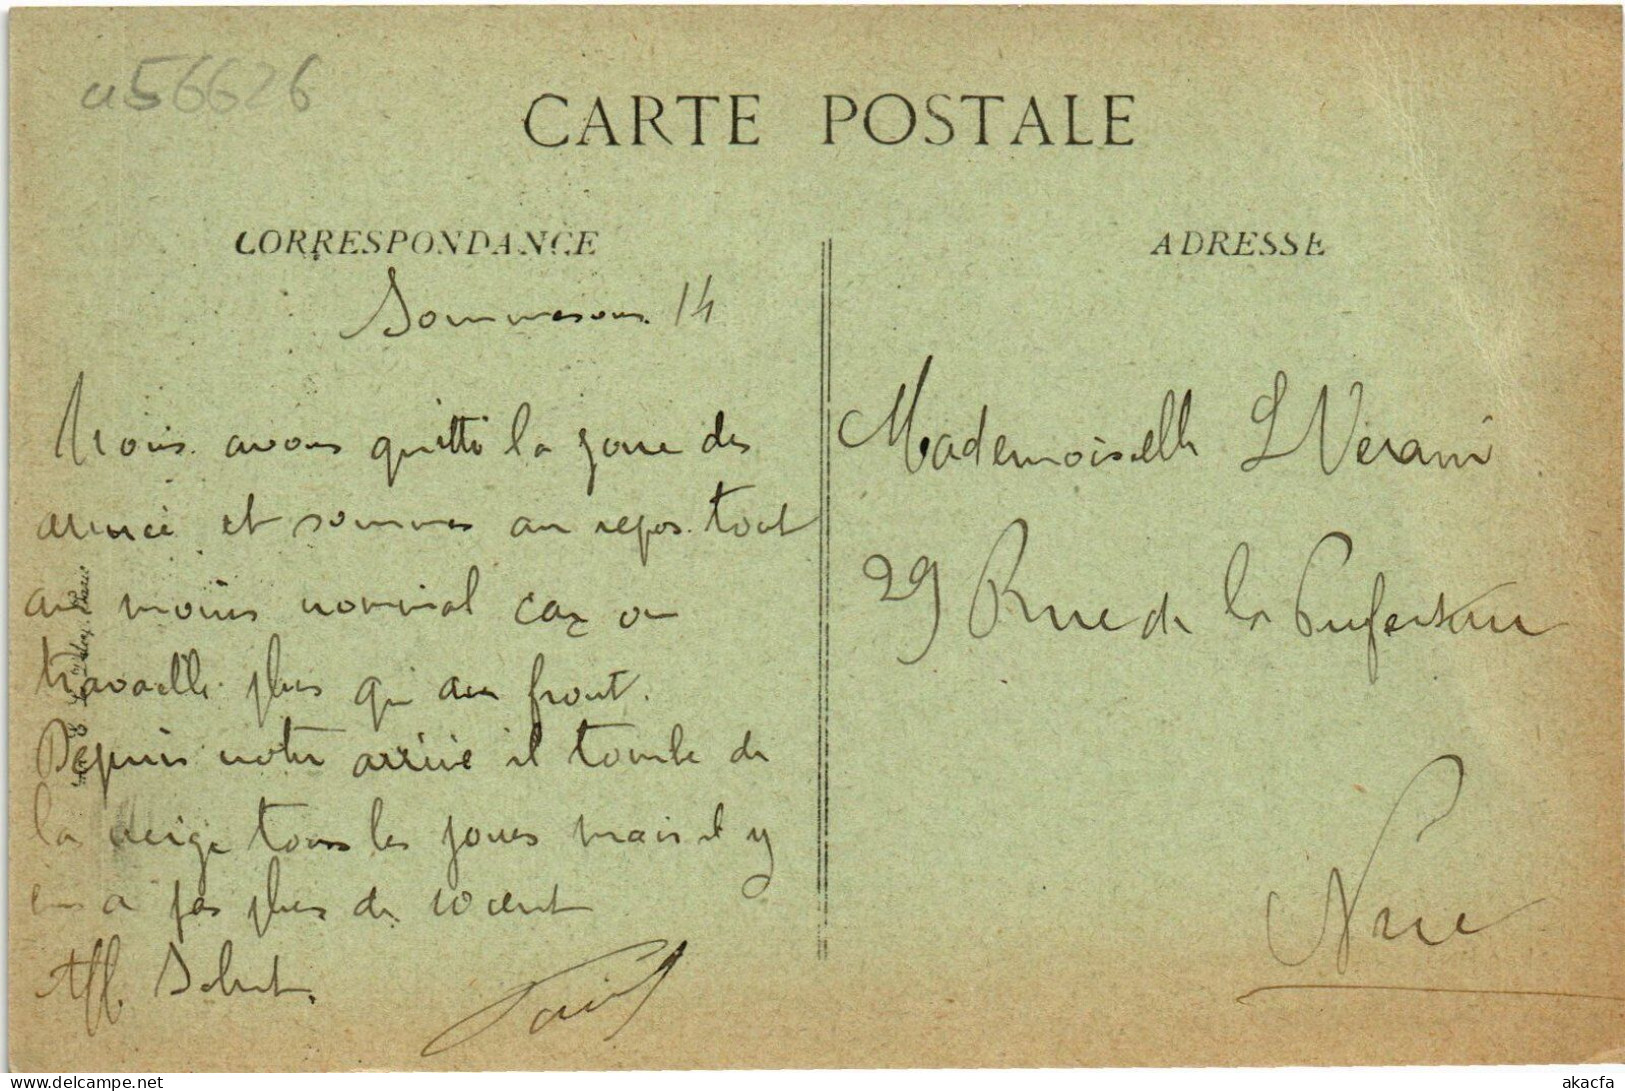 a56626
CARTE POSTALE
CORRESPONDANCE
ADRESSE
Sommesous 14
Nous avons quitté la zone des
armée et sommes au repos tout
au moins nominal car on
travaille plus qu au front.
Depuis notre arrivé il tombe de
la neige tous les jours mais il y
en a pas plus de 10 cent
Aff. Salut.
Mademoiselle L Verani
29 Rue de la Prefecture
Nice
delcampe.net
akacfa